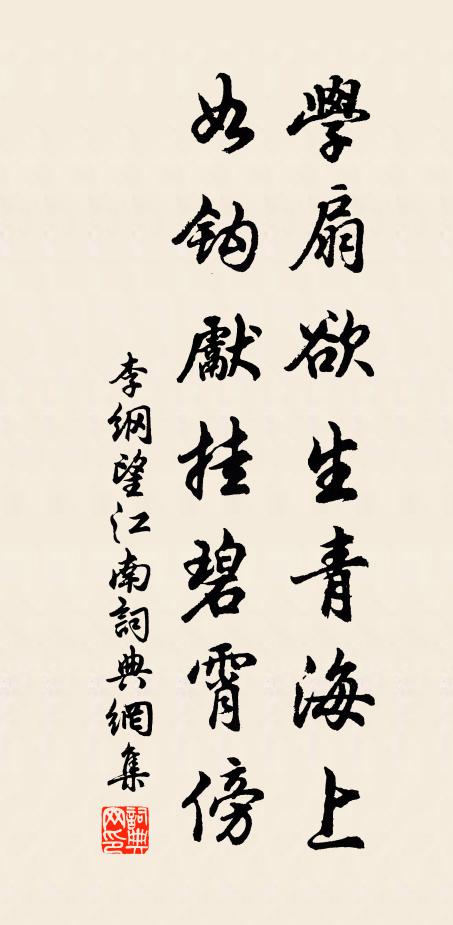 學扇欲生青海上
如鈎獻挂碧霄傍
李綱望江南詞典網集
詞典網印